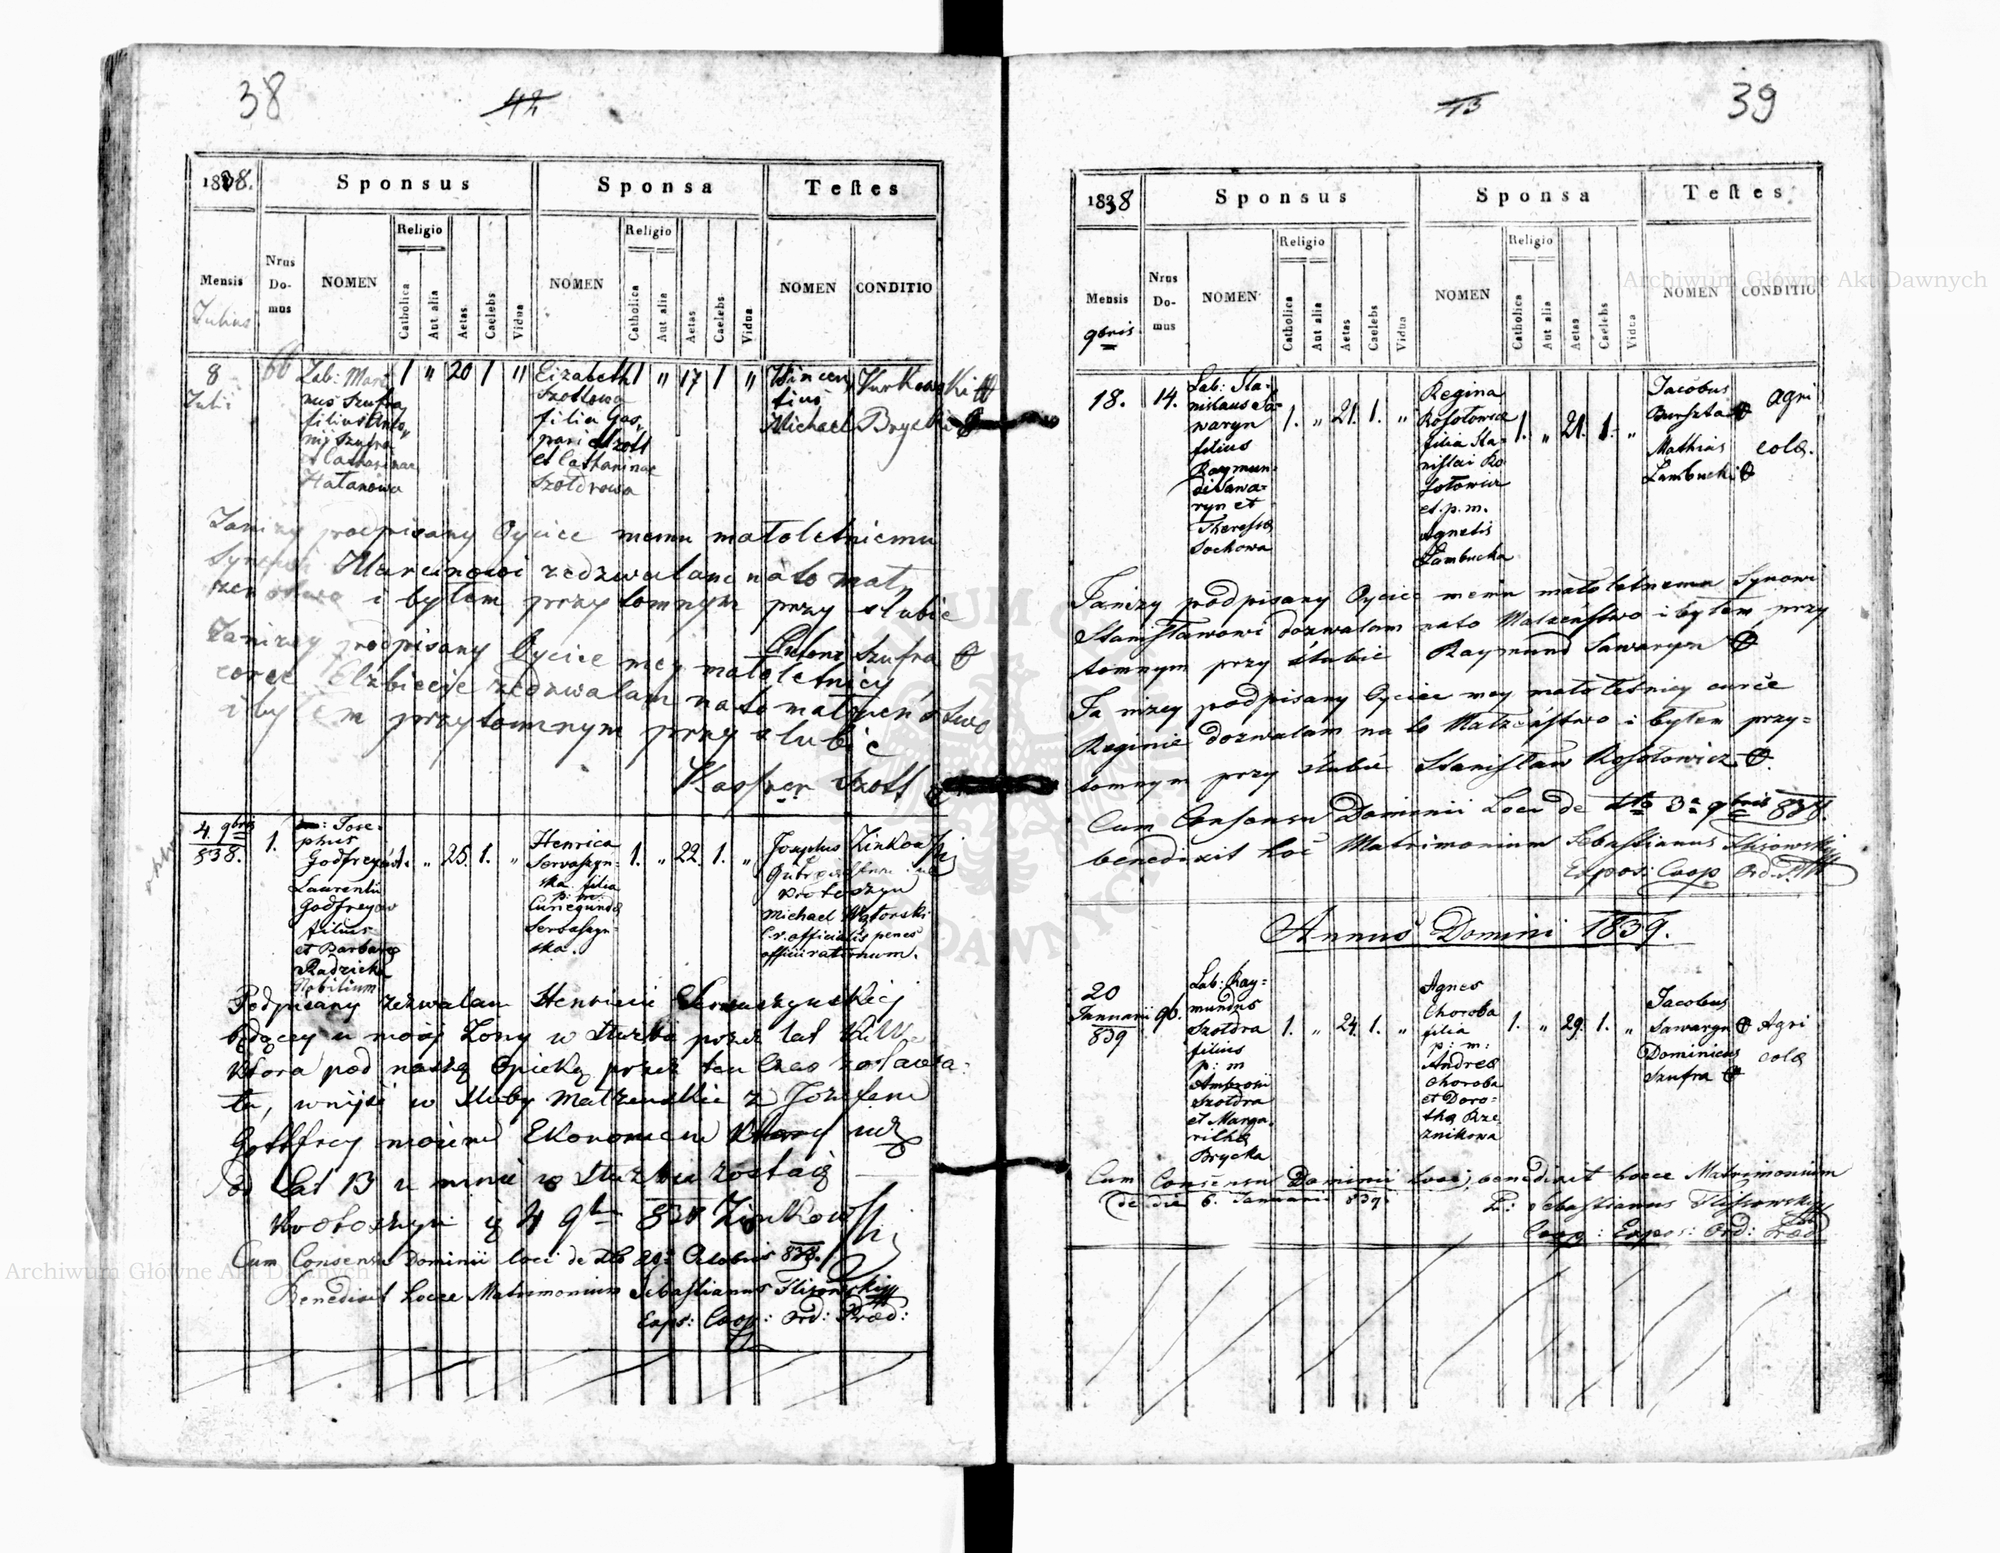 38
42
1838.
Sponsus
Sponsa
Testes
Mensis
Julius
Nrus Do-mus
NOMEN
Religio
Catholica
Aut alia
Aetas
Caelebs
Vidua
NOMEN
Religio
Catholica
Aut alia
Aetas
Caelebs
Vidua
NOMEN
CONDITIO
8
Julii
66
Lab: Marti
nus Szufra
filius Anto
nij Szufra
et Catharinae
Hatanowa
1 " 20 1 "
Elzabeth
Szottowa
filia Gas,
pari Szott
et Catharinae
Szoldrowa
1 " 17 1 "
Wincen
tius Kurkowski
Michael Bryelki
Ja niżey podpisany Oyciec memu małoletniemu
Synowi Marcinowi zedzwalam na to mał
żeństwo i byłem przytomnym przy ślubie
Antoni Szufra
Ja niżey podpisany Oyciec mey małoletniey
corce Elzbiecie zedzwalam na to małżeństwo
i byłem przytomnym przy slubie
Kasper Szott
4. 9bris
838.
1.
Jose-
phus
Godfreyow
Laurentii
Godfreyow
filius
et Barbara
Radzicka
Nobilium
1. " 25. 1. "
Henrica
Serwaszyn-
ska filia
p: m:
Cunegunda
Serwaszyn-
ska.
1. " 22. 1. "
Josephus Zinkowski
Krotoszyn
Michael Wątorski
C. r. officialis penes
officii rationum.
Podpisany zezwalam Henrice Serwaszynskiej
będącey u mojej Zony w służbie przez lat
która pod naszą Opieką przez ten czas zostawa-
ła, wniść w śluby Małzenskie z Jozefem
Gottfrey moiem Ekonomem ktory iuz
od Lat 13 u mnie w służbie zostaie
Krotoszyn 4 9br 838 Zinkowski
Cum Consensu Dominii loci de dto 29: Octobris 838.
Benedixit hocce Matrimonium Sebastianus Fliszowski
Exps: Coop: Ord: Praed:
43
39
1838
Sponsus
Sponsa
Testes
Mensis
9bris
Nrus Do-mus
NOMEN
Religio
Catholica
Aut alia
Aetas
Caelebs
Vidua
NOMEN
Religio
Catholica
Aut alia
Aetas
Caelebs
Vidua
NOMEN
CONDITIO
18.
14.
Lab: Sta-
nislaus Sa-
waryn
filius
Raymun-
di Sawa-
ryn et
Theressa
Sochowa
1. " 21. 1. "
Regina
Rosołowicz
filia Sta-
nislai Ro
sołowicz
et p. m.
Agnetis
Łambucka
1. " 21. 1. "
Jacobus
Burszta
Mathias
Łambucki
agri
colae.
Ja niżey podpisany Oyciec memu małoletnemu Synowi
Stanisławowi dozwalam na to Malżeństwo i byłem przy
tomnym przy ślubie Raymund Sawaryn
Ja niżey podpisany Oyciec mey małoletniey curce
Reginie dozwalam na to Malżeństwo i byłem przy-
tomnym przy ślubie Stanisław Rosołowicz
Cum Consensu Dominii Loci de dto 3a 9bris 838.
benedixit hoc Matrimonium Sebastianus Fliszowski
Expos: Coop Ord:
Annus Domini 1839.
20
Januarii
839
96.
Lab: Ray-
mundus
Szołdra
filius
p: m
Ambrosii
Szołdra
et Marga
ritha
Brycka
1. " 24. 1. "
Agnes
Choroba
filia
p: m:
Andrea
Choroba
et Doro-
tha Rze-
znikowa
1. " 29. 1. "
Jacobus
Sawaryn
Dominicus
Szufra
Agri
colae
Cum Consensu Dominii Loci, benedixit hocce Matrimonium
de die 6. Januarii 839.
P: Sebastianus Fliszowski
Coop: Expos: Ord: Praed
Archiwum Główne Akt Dawnych
Archiwum Główne Akt Dawnych